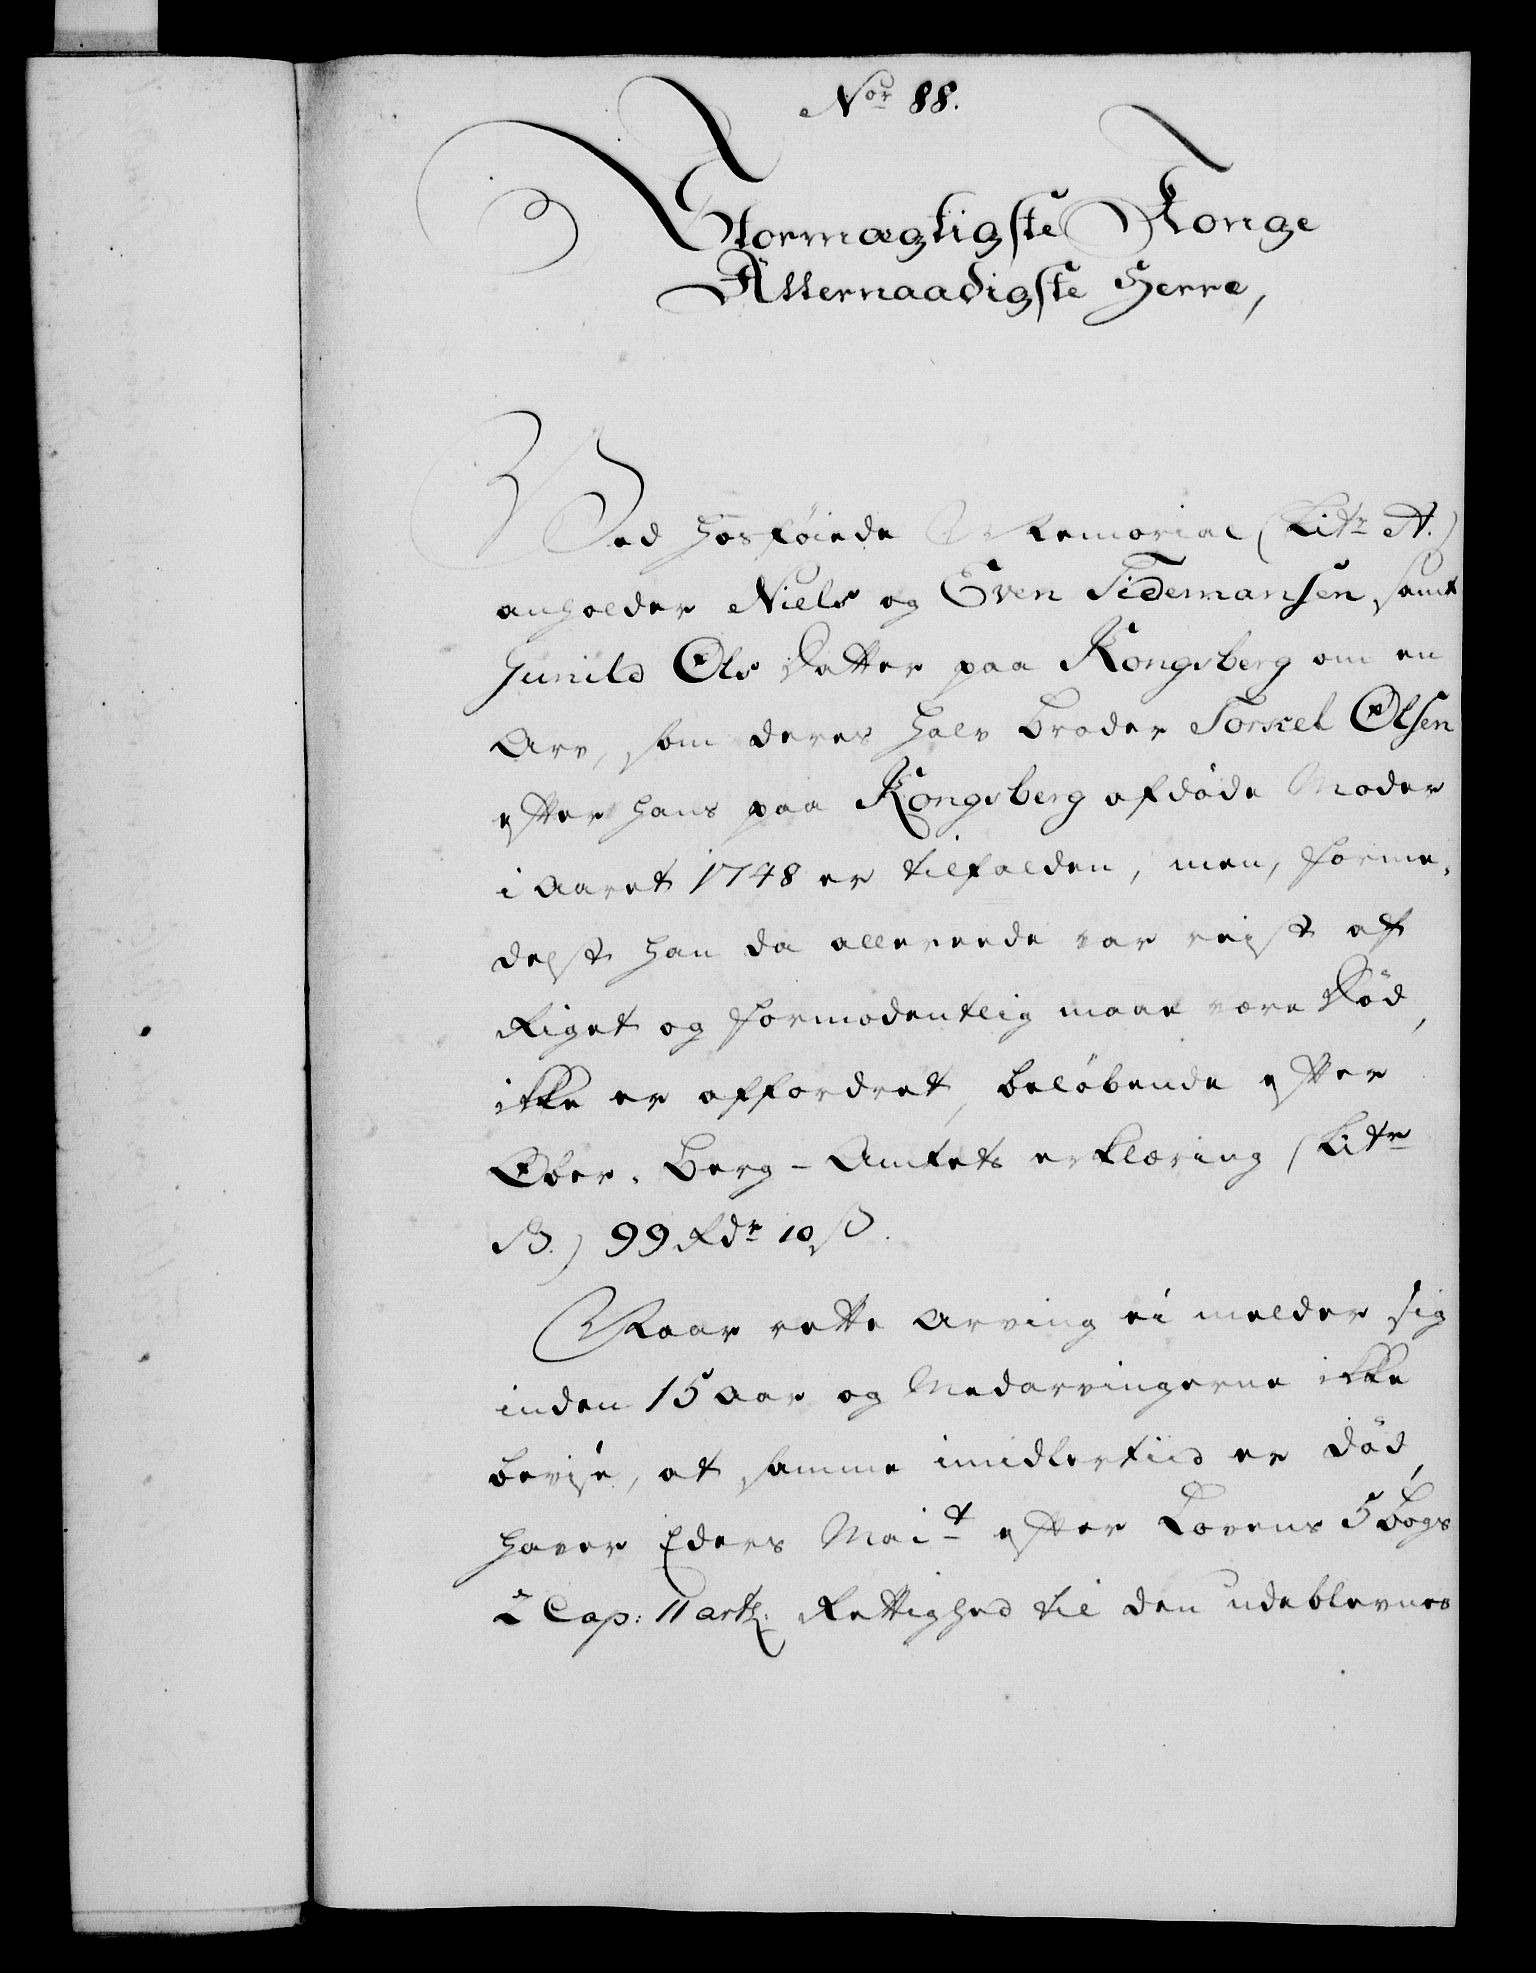 Nor 88.
Stormægtigste Konge
Allernaadigste Herre,
Ved hosføiede Memorial (Litr A.)
anholder Niels og Even Tidemansen samt
Gunild Ols Datter paa Kongsberg om en
Arv, som deres halv Broder Torkel Olsen
efter hans paa Kongsberg afdøde Moder
i Aaret 1748 er tilfalden, men, forme-
delst han da allereede var reist af
Riget og formodentlig maae være Død,
ikke er affordret, beløbende efter
Ober-Berg-Amtets erklæring (Litr
B.) 99 Rdr 10 ß.
Naar rette Arving ei melder sig
inden 15 Aar og Medarvingerne ikke
bevise, at samme imidlertiid er død,
haver Eders Mait efter Lovens 5 Bogs
2 Cap: 11 artl: Rettighed til den udeblevnes